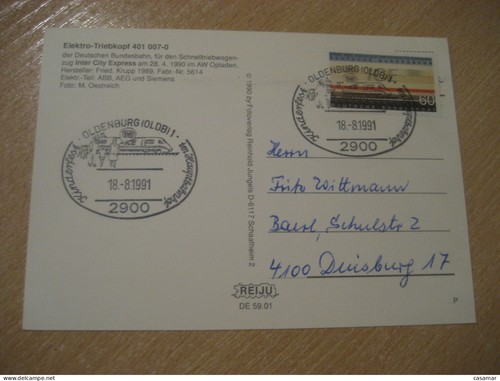 Elektro-Triebkopf 401 007-0
der Deutschen Bundesbahn, für den Schnelltriebwagen-
zug Inter City Express am 28. 4. 1990 im AW Opladen,
Hersteller: Fried. Krupp 1989, Fabr.-Nr. 5614
Elektr.-Teil: ABB, AEG und Siemens
Foto: M. Oestreich
OLDENBURG (OLDB) 1
Kinderfest im Hauptbahnhof
18.-8.1991
2900
© 1990 by Fotoverlag Reinhold Jungels D-6117 Schaafheim 2
60
OLDENBURG (OLDB) 1
Kinderfest im Hauptbahnhof
18.-8.1991
2900
Herrn
Fritz Wittmann
Baerl, Schulstr 2
4100 Duisburg 17
REIJU
DE 59.01
P
http://www.delcampe.net
casamar